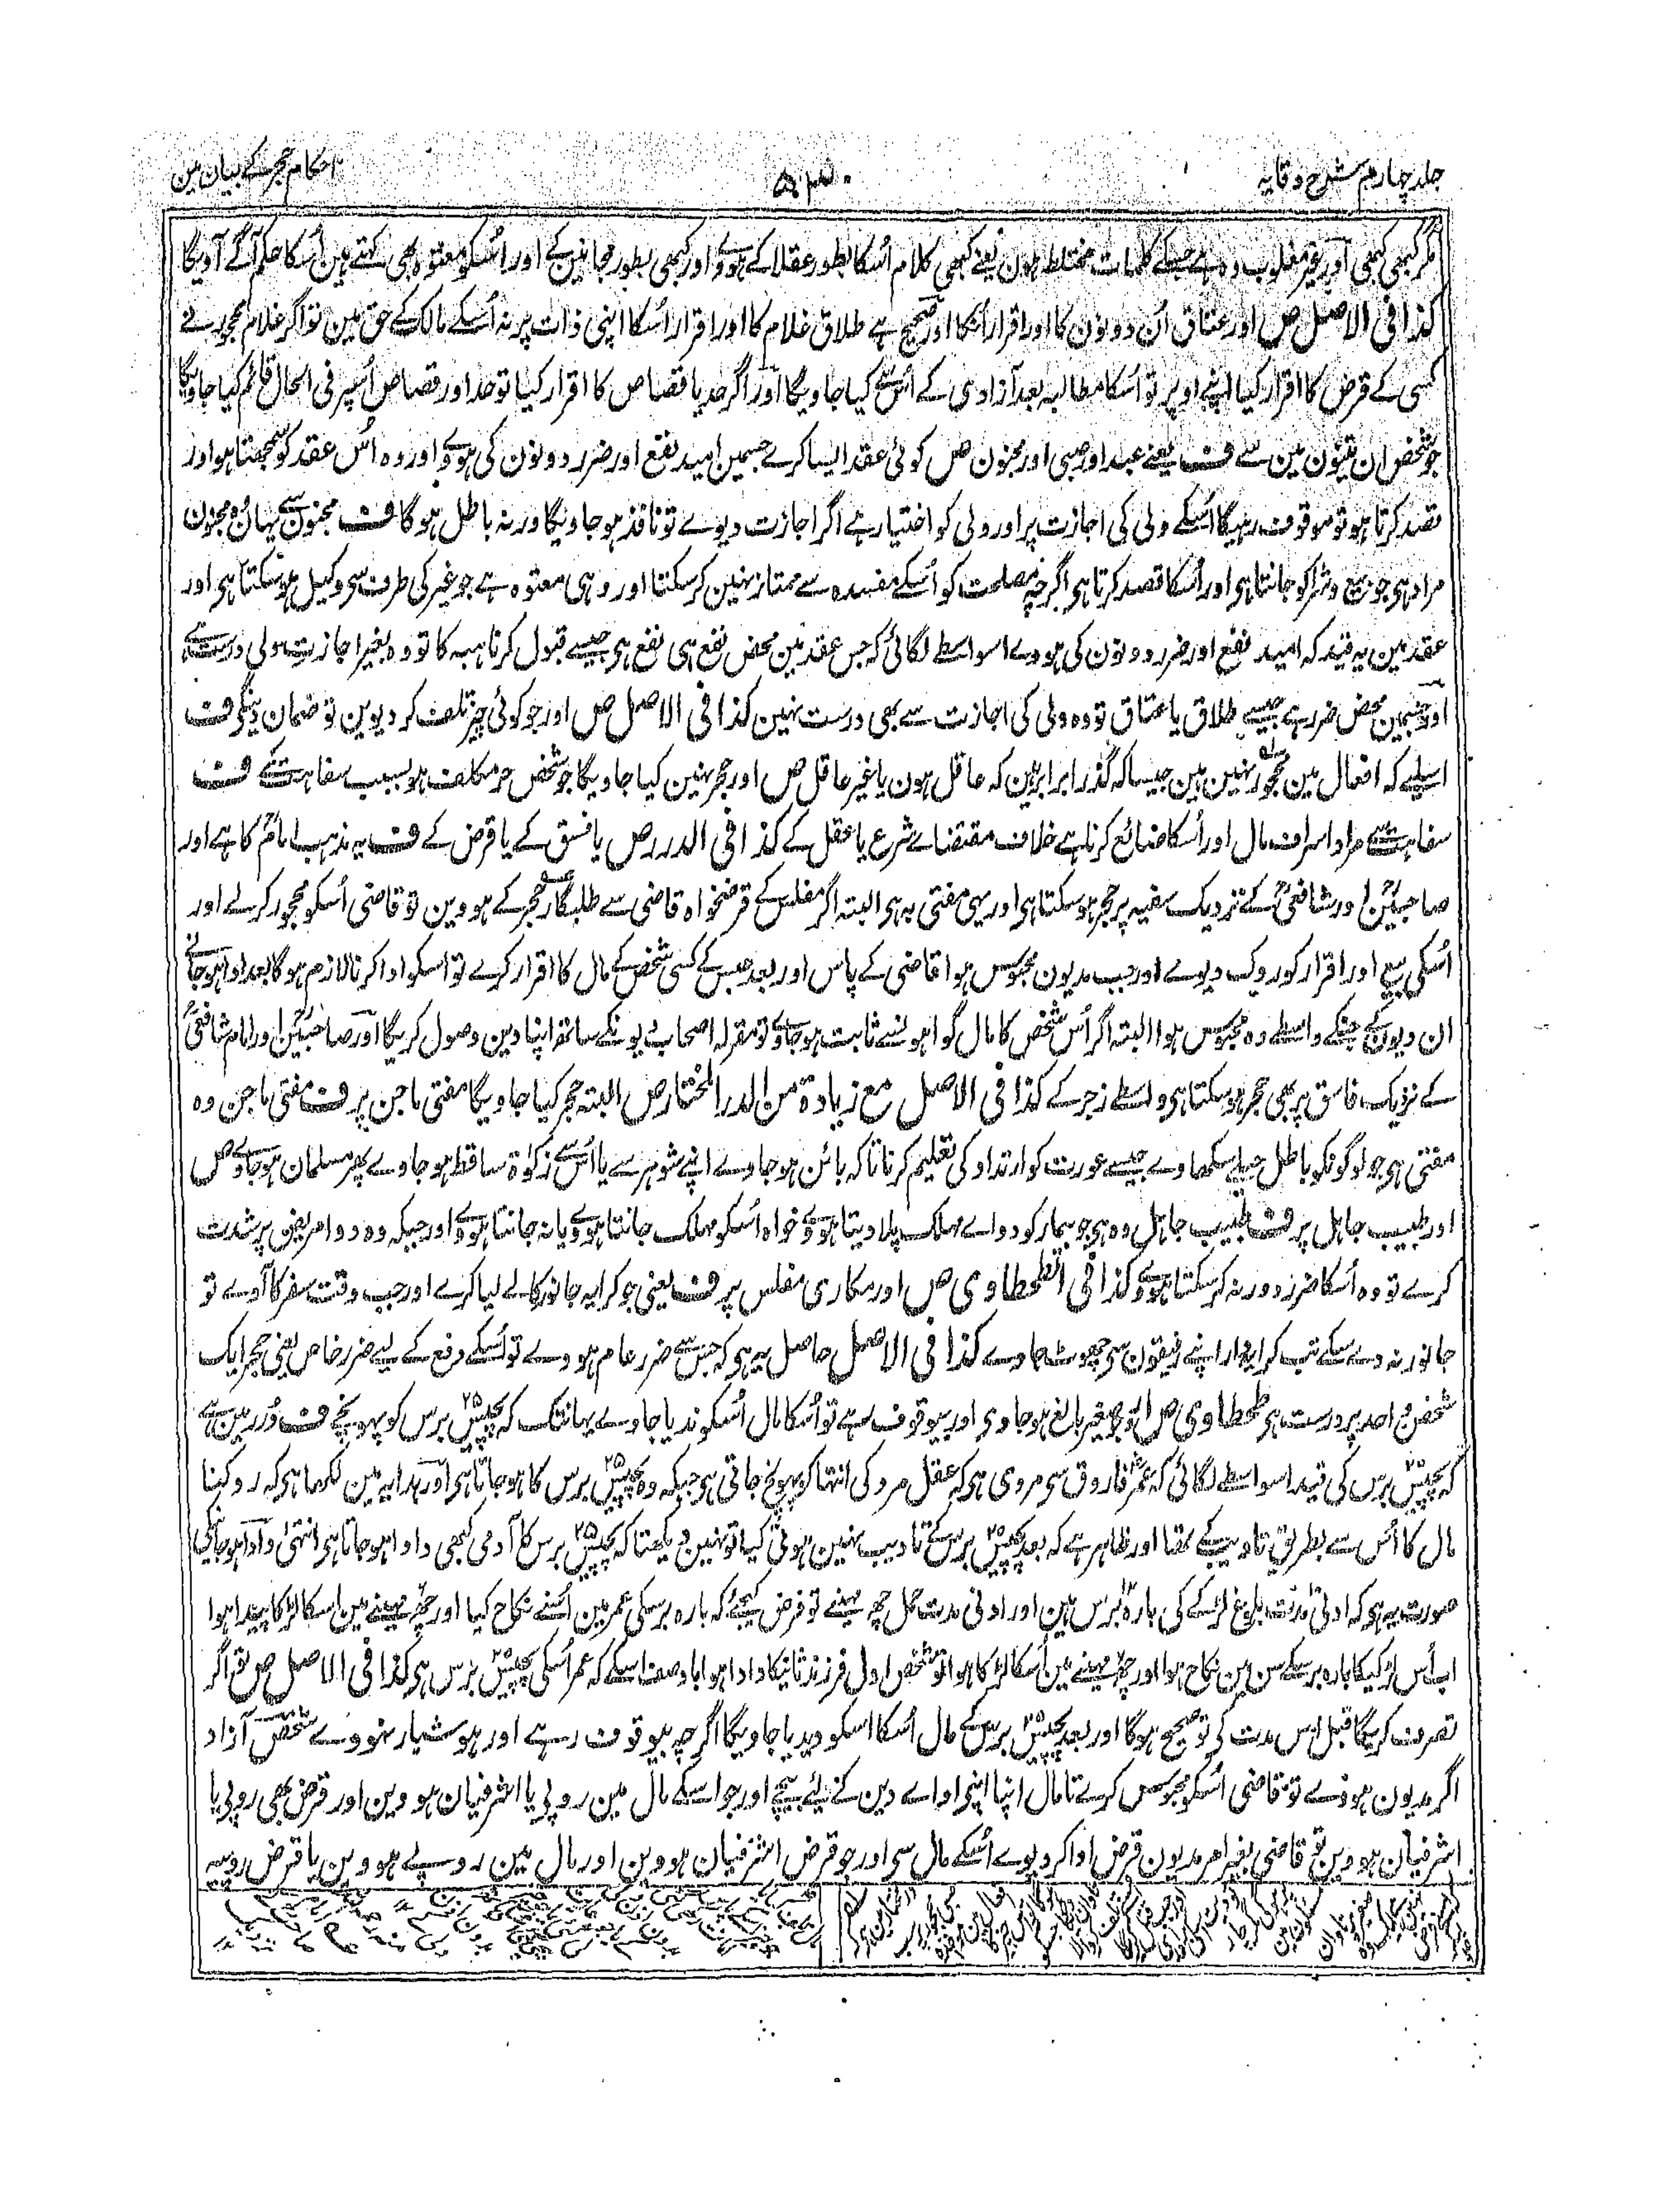 جلد چہارم شرح وقایہ
۵۳۰
احکام حجر کے بیان مین
مگر کبھی کبھی اور غیر مغلوب وہ ہے جسکے کلمات مختلط ہون یعنے کبھی کلام اُسکا بطور عقلا کے ہووے اور کبھی بطور مجانین کے اور اُسکو معتوہ بھی کہتے ہین اُسکا حکم آگے آویگا
کذا فی الاصل ص اور عتاق اُن دونون کا اور اقرار اُنکا اور صحیح ہے طلاق غلام کا اور اقرار اُسکا اپنی ذات پر نہ اُسکے مالک کے حق مین تو اگر غلام محجور نے
کسی کے قرض کا اقرار کیا اپنے اوپر تو اُسکا مطالبہ بعد آزادی کے اُس سے کیا جاویگا اور اگر حد یا قصاص کا اقرار کیا تو حد اور قصاص اُسپر فی الحال قائم کیا جاویگا
جو شخص ان تینون مین سے ف یعنے عبد اور صبی اور مجنون ص کوئی عقد ایسا کرے جسمین امید نفع اور ضرر دونون کی ہووے اور وہ اُس عقد کو سمجھتا ہو اور
قصد کرتا ہو تو موقوف رہیگا اُسکے ولی کی اجازت پر اور ولی کو اختیار ہے اگر اجازت دیوے تو نافذ ہو جاویگا ورنہ باطل ہوگا ف مجنون سے یہان وہ مجنون
مراد ہی جو بیع و شرا کو جانتا ہی اور اُسکا قصد کرتا ہی اگرچہ مصلحت کو اُسکے مفسدہ سے ممتاز نہین کر سکتا اور وہی معتوہ ہے جو غیر کی طرف سی وکیل ہو سکتا ہی اور
عقد مین یہ قید کہ امید نفع اور ضرر دونون کی ہووے اسواسطے لگائی کہ جس عقد مین محض نفع ہی نفع ہی جیسے قبول کرنا ہبہ کا تو وہ بغیر اجازت ولی درست ہے
اور جسمین محض ضرر ہے جیسے طلاق یا عتاق تو وہ ولی کی اجازت سے بھی درست نہین کذا فی الاصل ص اور جو کوئی چیز تلف کر دیوین تو ضمان دینگے ف
اسلیے کہ افعال مین محجور نہین ہین جیسا کہ گذرا برابر ہین کہ عاقل ہون یا غیر عاقل ص اور حجر نہین کیا جاویگا جو شخص حر مکلف ہو بسبب سفاہت کے ف
سفاہت سے مراد اسراف مال اور اُسکا ضائع کرنا ہے خلاف مقتضاے شرع یا عقل کے کذا فی الدرر ص یا فسق کے یا قرض کے ف یہ مذہب امامؒ کا ہے اور
صاحبینؒ اور شافعیؒ کے نزدیک سفیہ پر حجر ہو سکتا ہی اور یہی مفتی بہ ہی البتہ اگر مفلس کے قرضخواہ قاضی سے طلبگار حجر کے ہووین تو قاضی اُسکو محجور کرلے اور
اُسکی بیع اور اقرار کو روک دیوے اور جب مدیون محبوس ہوا قاضی کے پاس اور بعد حبس کے کسی شخص کے مال کا اقرار کرے تو اسکو ادا کرنا لازم ہوگا بعد ادا ہو جانے
ان دیون کے جنکے واسطے وہ محبوس ہوا البتہ اگر اُس شخص کا مال گواہونسے ثابت ہو جاوے تو مقرلہ اصحاب دیونکے ساتھ اپنا دین وصول کریگا اور صاحبینؒ اور امام شافعیؒ
کے نزدیک فاسق پر بھی حجر ہو سکتا ہی واسطے زجر کے کذا فی الاصل مع زیادۃ من الدر المختار ص البتہ حجر کیا جاویگا مفتی ماجن پر ف مفتی ماجن وہ
مفتی ہی جو لوگونکو باطل حیلے سکھاوے جیسے عورت کو ارتداد کی تعلیم کرنا تاکہ بائن ہو جاوے اپنے شوہر سے یا اُس سے زکوٰۃ ساقط ہو جاوے پھر مسلمان ہو جاوے ص
اور طبیب جاہل پر ف طبیب جاہل وہ ہی جو بیمار کو دواے مہلک پلا دیتا ہووے خواہ اُسکو مہلک جانتا ہووے یا نہ جانتا ہووے اور جبکہ وہ دوا مریض پر شدت
کرے تو وہ اُسکا ضرر دور نہ کر سکتا ہووے کذا فی الطحطاوی ص اور مکاری مفلس پر ف یعنی جو کرایہ جانور کا لے لیا کرے اور جب وقت سفر کا آوے تو
جانور نہ دے سکے تب کرایہ دار اپنے رفیقون سی چھوٹ جاوے کذا فی الاصل حاصل یہ ہی کہ جس سے ضرر عام ہووے تو اُسکے دفع کے لیے ضرر خاص یعنی حجر ایک
شخص واحد پر درست ہی طحطاوی ص اور جو صغیر بالغ ہو جاوی اور بیوقوف رہے تو اُسکا مال اُسکو ندیا جاوے یہانتک کہ پچیس ۲۵ برس کو پہونچے ف درر مین ہے
کہ پچیس ۲۵ برس کی قید اسواسطے لگائی کہ عمر فاروق سی مروی ہی کہ عقل مرد کی انتہا کو پہونچ جاتی ہی جبکہ وہ پچیس ۲۵ برس کا ہو جاتا ہی اور ہدایہ مین لکھا ہی کہ روکنا
مال کا اُس سے بطریق تادیب کے تھا اور ظاہر ہے کہ بعد پچیس ۲۵ برس کے تادیب نہین ہوتی کیا تو نہین دیکھتا کہ پچیس ۲۵ برس کا آدمی کبھی دادا ہو جاتا ہی انتہیٰ دادا ہو جانیکی
صورت یہ ہو کہ ادنیٰ مدت بلوغ لڑکے کی بارہ برس ہین اور ادنی مدت حمل چھ مہینے تو فرض کیجیے کہ بارہ برسکی عمر مین اُسنے نکاح کیا اور چھ مہینے مین اسکا لڑکا پیدا ہوا
اب اُس لڑکیکا بارہ برسکے سن مین نکاح ہوا اور چھ مہینے مین اُسکا لڑکا ہوا تو شخص اول فرزند ثانیکا دادا ہوا باوصف اسکے کہ عمر اُسکی پچیس ۲۵ برس ہی کذا فی الاصل ص تو اگر
تصرف کریگا قبل اس مدت کی تو صحیح ہوگا اور بعد پچیس ۲۵ برس کے مال اُسکا اسکو دیدیا جاویگا اگرچہ بیوقوف رہے اور ہوشیار نہووے شخص آزاد
اگر مدیون ہووے تو قاضی اُسکو محبوس کرے تا مال اپنا اپنی اداے دین کے لیئے بیچے اور جو اسکے مال مین روپے یا اشرفیان ہووین اور قرض بھی روپے یا
اشرفیان ہووین تو قاضی بغیر امر مدیون قرض ادا کر دیوے اُسکے مال سی اور جو قرض اشرفیان ہووین اور مال مین روپے ہووین یا قرض روپیہ